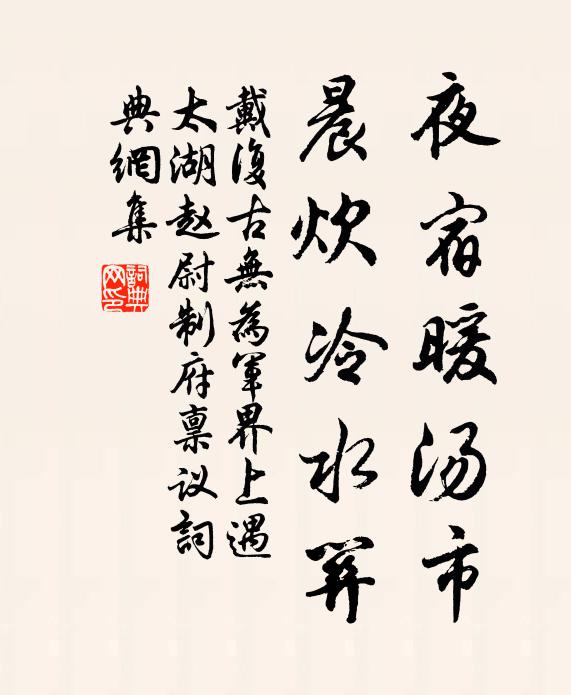 夜宿暖汤市
晨炊冷水
戴復古無為軍界上遇
太湖赵尉制府禀议詞
典網集
詞典
网印